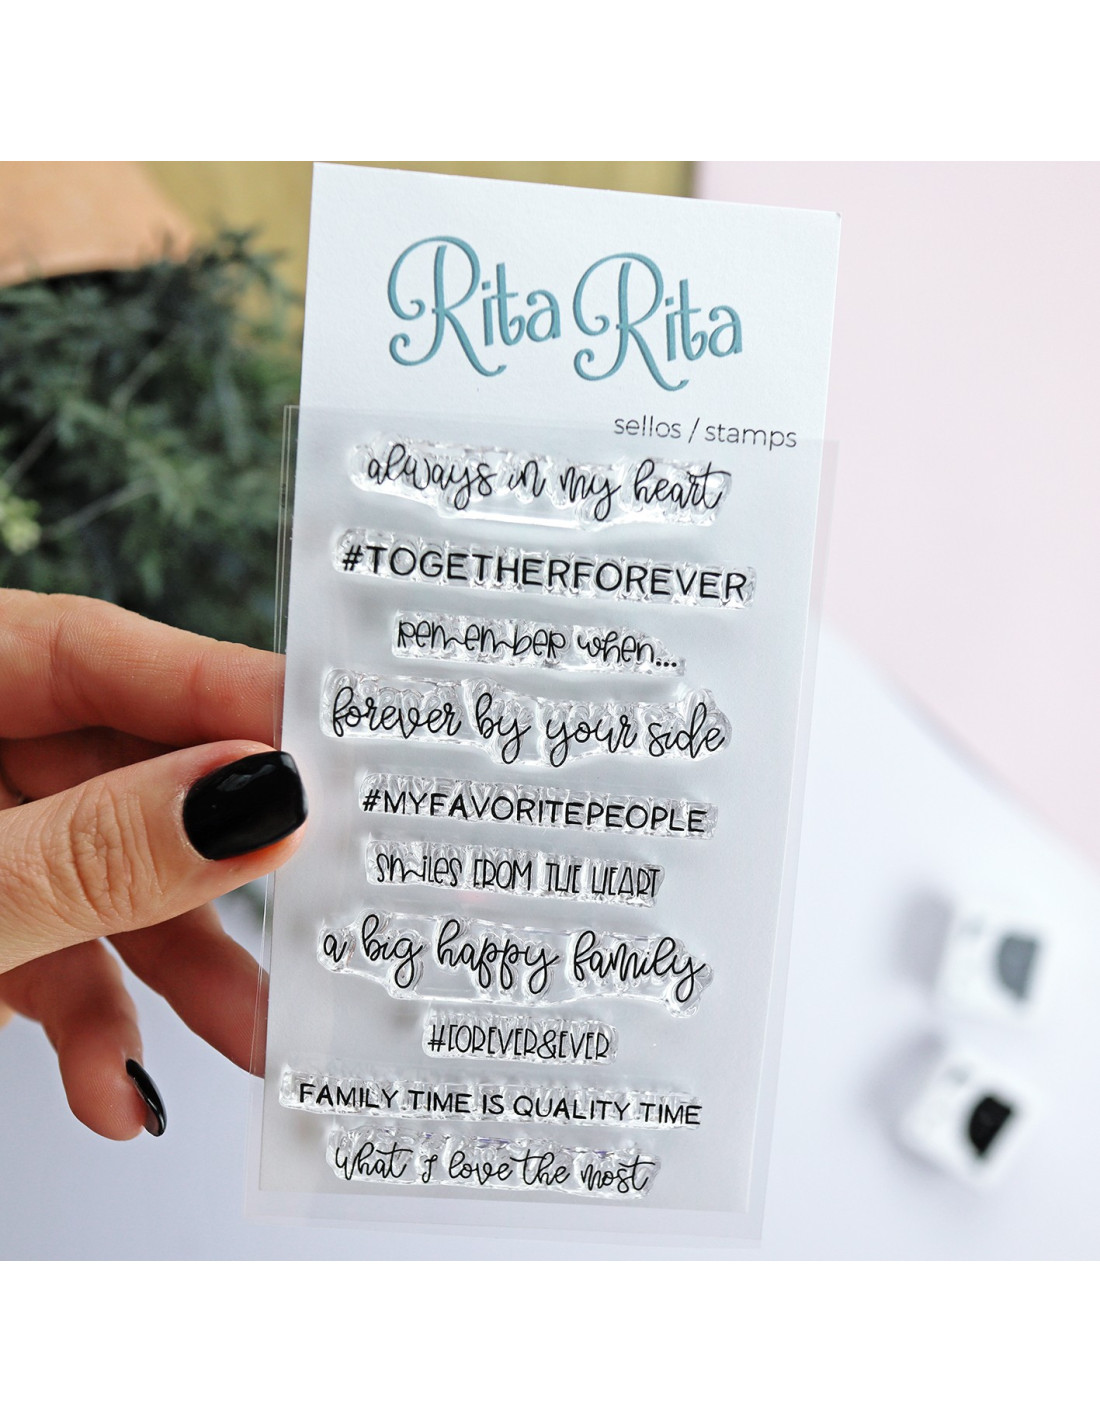 Rita Rita
sellos / stamps
always in my heart
#TOGETHERFOREVER
remember when...
forever by your side
#MYFAVORITEPEOPLE
smiles FROM THE HEART
a big happy family
#FOREVER&EVER
FAMILY TIME IS QUALITY TIME
what I love the most